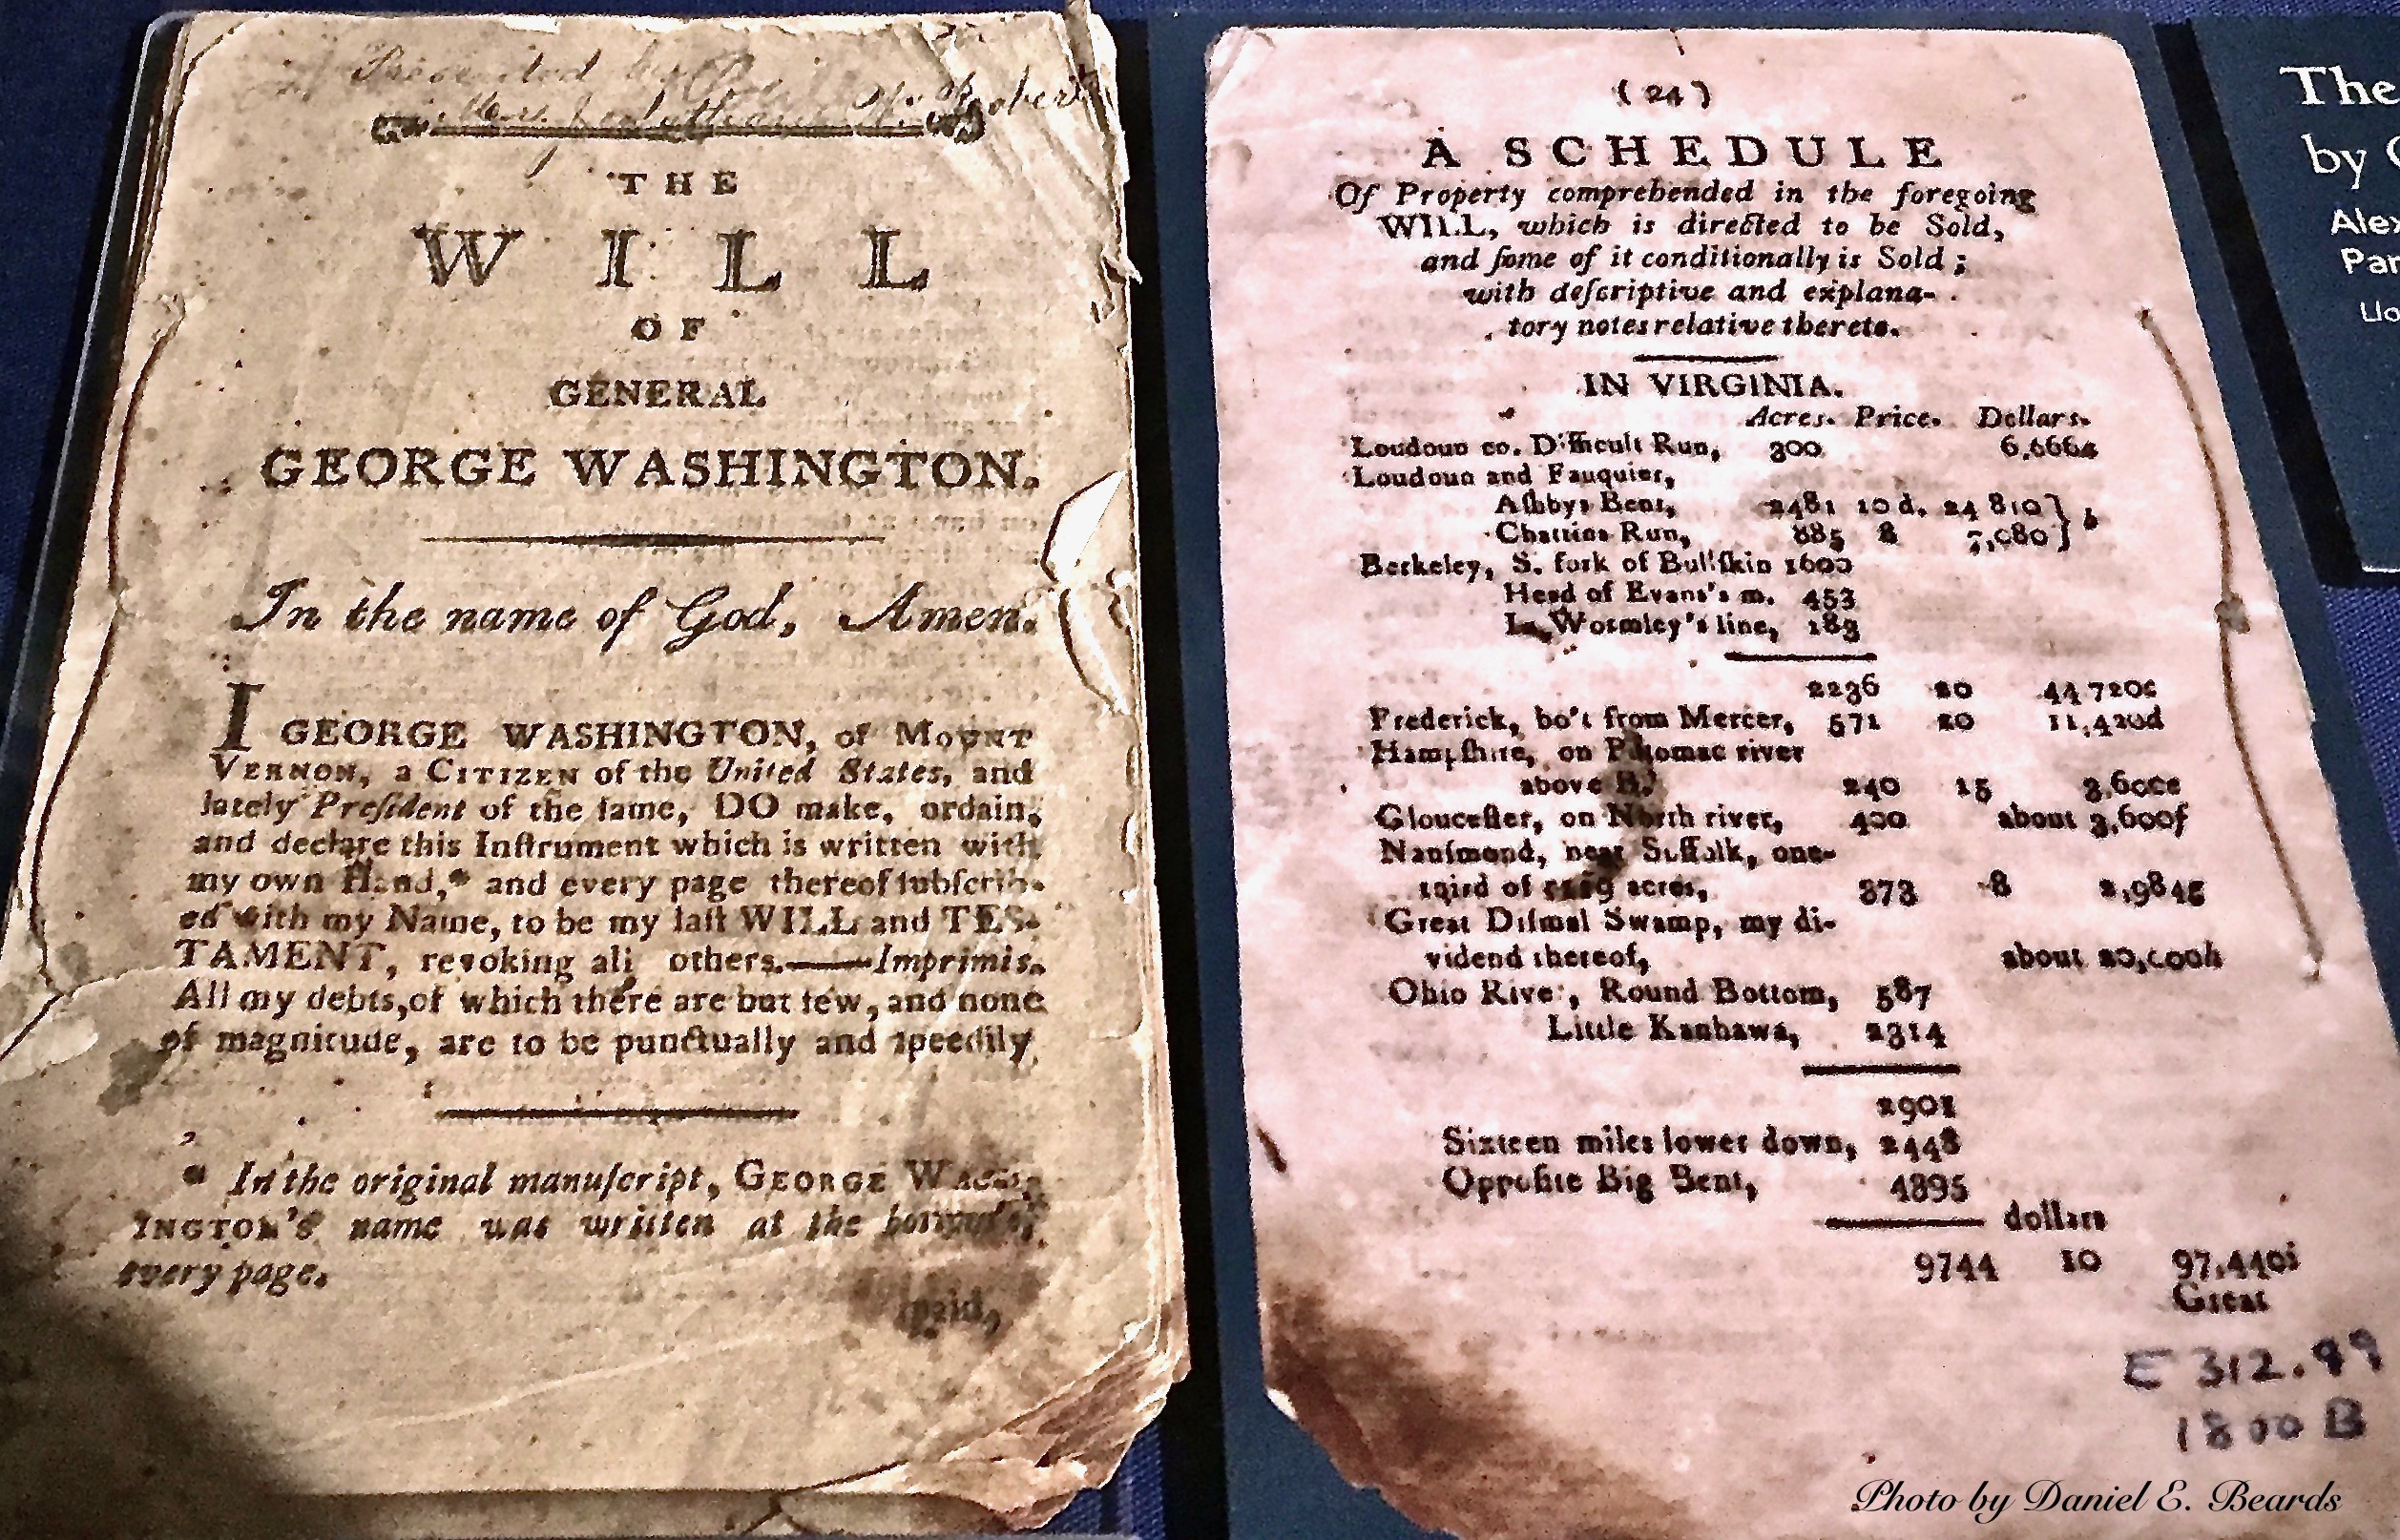 Presented by
THE
WILL
OF
GENERAL
GEORGE WASHINGTON.
In the name of God, Amen.
I GEORGE WASHINGTON, of MOUNT
VERNON, a CITIZEN of the United States, and
lately Preſident of the ſame, DO make, ordain,
and declare this Inſtrument which is written with
my own Hand,* and every page thereof ſubſcrib-
ed with my Name, to be my laſt WILL and TES-
TAMENT, revoking all others.——Imprimis.
All my debts, of which there are but few, and none
of magnitude, are to be punctually and ſpeedily
* In the original manuſcript, GEORGE WASH-
INGTON'S name was written at the bottom of
every page.
paid,
(24)
A SCHEDULE
Of Property comprehended in the foregoing
WILL, which is directed to be Sold,
and ſome of it conditionally is Sold;
with deſcriptive and explana-
tory notes relative thereto.
IN VIRGINIA.
Acres. Price. Dollars.
Loudoun co. Difficult Run, 300 6,666a
Loudoun and Fauquier,
Aſhbys Bent, 2481 10 d. 24 810 } b
Chattins Run, 885 8 7,080 }
Berkeley, S. fork of Bullſkin 1600
Head of Evans's m. 453
In Wormley's line, 183
2236 20 44 720c
Frederick, bo't from Mercer, 571 20 11,420d
Hampſhire, on Potomac river
above B. 240 15 3,600e
Glouceſter, on North river, 400 about 3,600f
Nanſmond, near Suffolk, one-
third of 1119 acres, 373 8 2,984g
Great Diſmal Swamp, my di-
vidend thereof, about 20,000h
Ohio River, Round Bottom, 587
Little Kanhawa, 2314
2901
Sixteen miles lower down, 2448
Oppoſite Big Bent, 4395
dollars
9744 10 97,440i
Great
E 312.99
1800 B
The
by
Photo by Daniel E. Beards